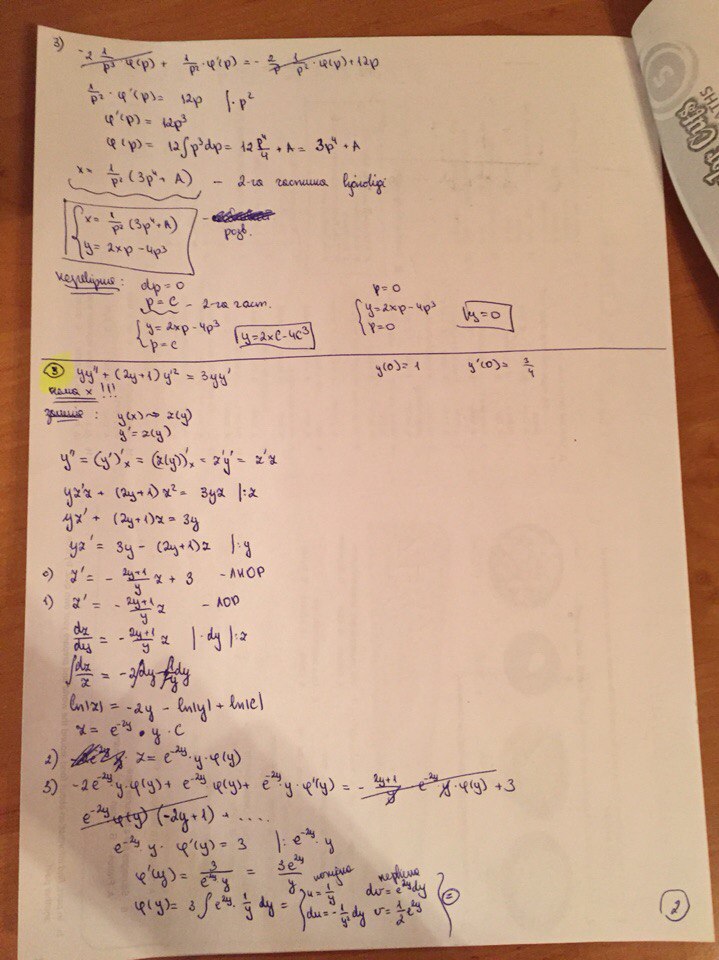 3) -2 1/p³ · φ(p) + 1/p² · φ'(p) = - 2/p · 1/p² · φ(p) + 12p
1/p² · φ'(p) = 12p | · p²
φ'(p) = 12p³
φ(p) = 12∫p³dp = 12 p⁴/4 + A = 3p⁴ + A
x = 1/p² (3p⁴ + A) - 2-га частина
{ x = 1/p² (3p⁴ + A)
y = 2xp - 4p³ - розв.
dp = 0
p = C - 2-га част.
{ y = 2xp - 4p³
p = c
y = 2xC - 4C³
p = 0
{ y = 2xp - 4p³
p = 0
y = 0
③ yy'' + (2y+1) y'² = 3yy' y(0) = 1 y'(0) = 3/4
нема x !!!
заміна : y(x) ⇝ z(y)
y' = z(y)
y'' = (y')'ₓ = (z(y))'ₓ = z'y' = z'z
yz'z + (2y+1) z² = 3yz |:z
yz' + (2y+1)z = 3y
yz' = 3y - (2y+1)z |:y
0) z' = - 2y+1/y z + 3 - ЛНОР
1) z' = - 2y+1/y z - ЛОР
dz/dy = - 2y+1/y z | · dy |:z
∫dz/z = -2∫dy - ∫dy/y
ln|z| = -2y - ln|y| + ln|C|
z = e⁻²ʸ · y · C
2) z = e⁻²ʸ · y · φ(y)
3) -2e⁻²ʸ y · φ(y) + e⁻²ʸ φ(y) + e⁻²ʸ · y · φ'(y) = - 2y+1/y e⁻²ʸ y · φ(y) + 3
e⁻²ʸ φ(y) (-2y+1) + ....
e⁻²ʸ · y · φ'(y) = 3 |: e⁻²ʸ · y
φ'(y) = 3/e⁻²ʸ · y = 3e²ʸ/y
φ(y) = 3 ∫ e²ʸ · 1/y dy = { u = 1/y dv = e²ʸ dy
du = - 1/y² dy v = 1/2 e²ʸ } =
2